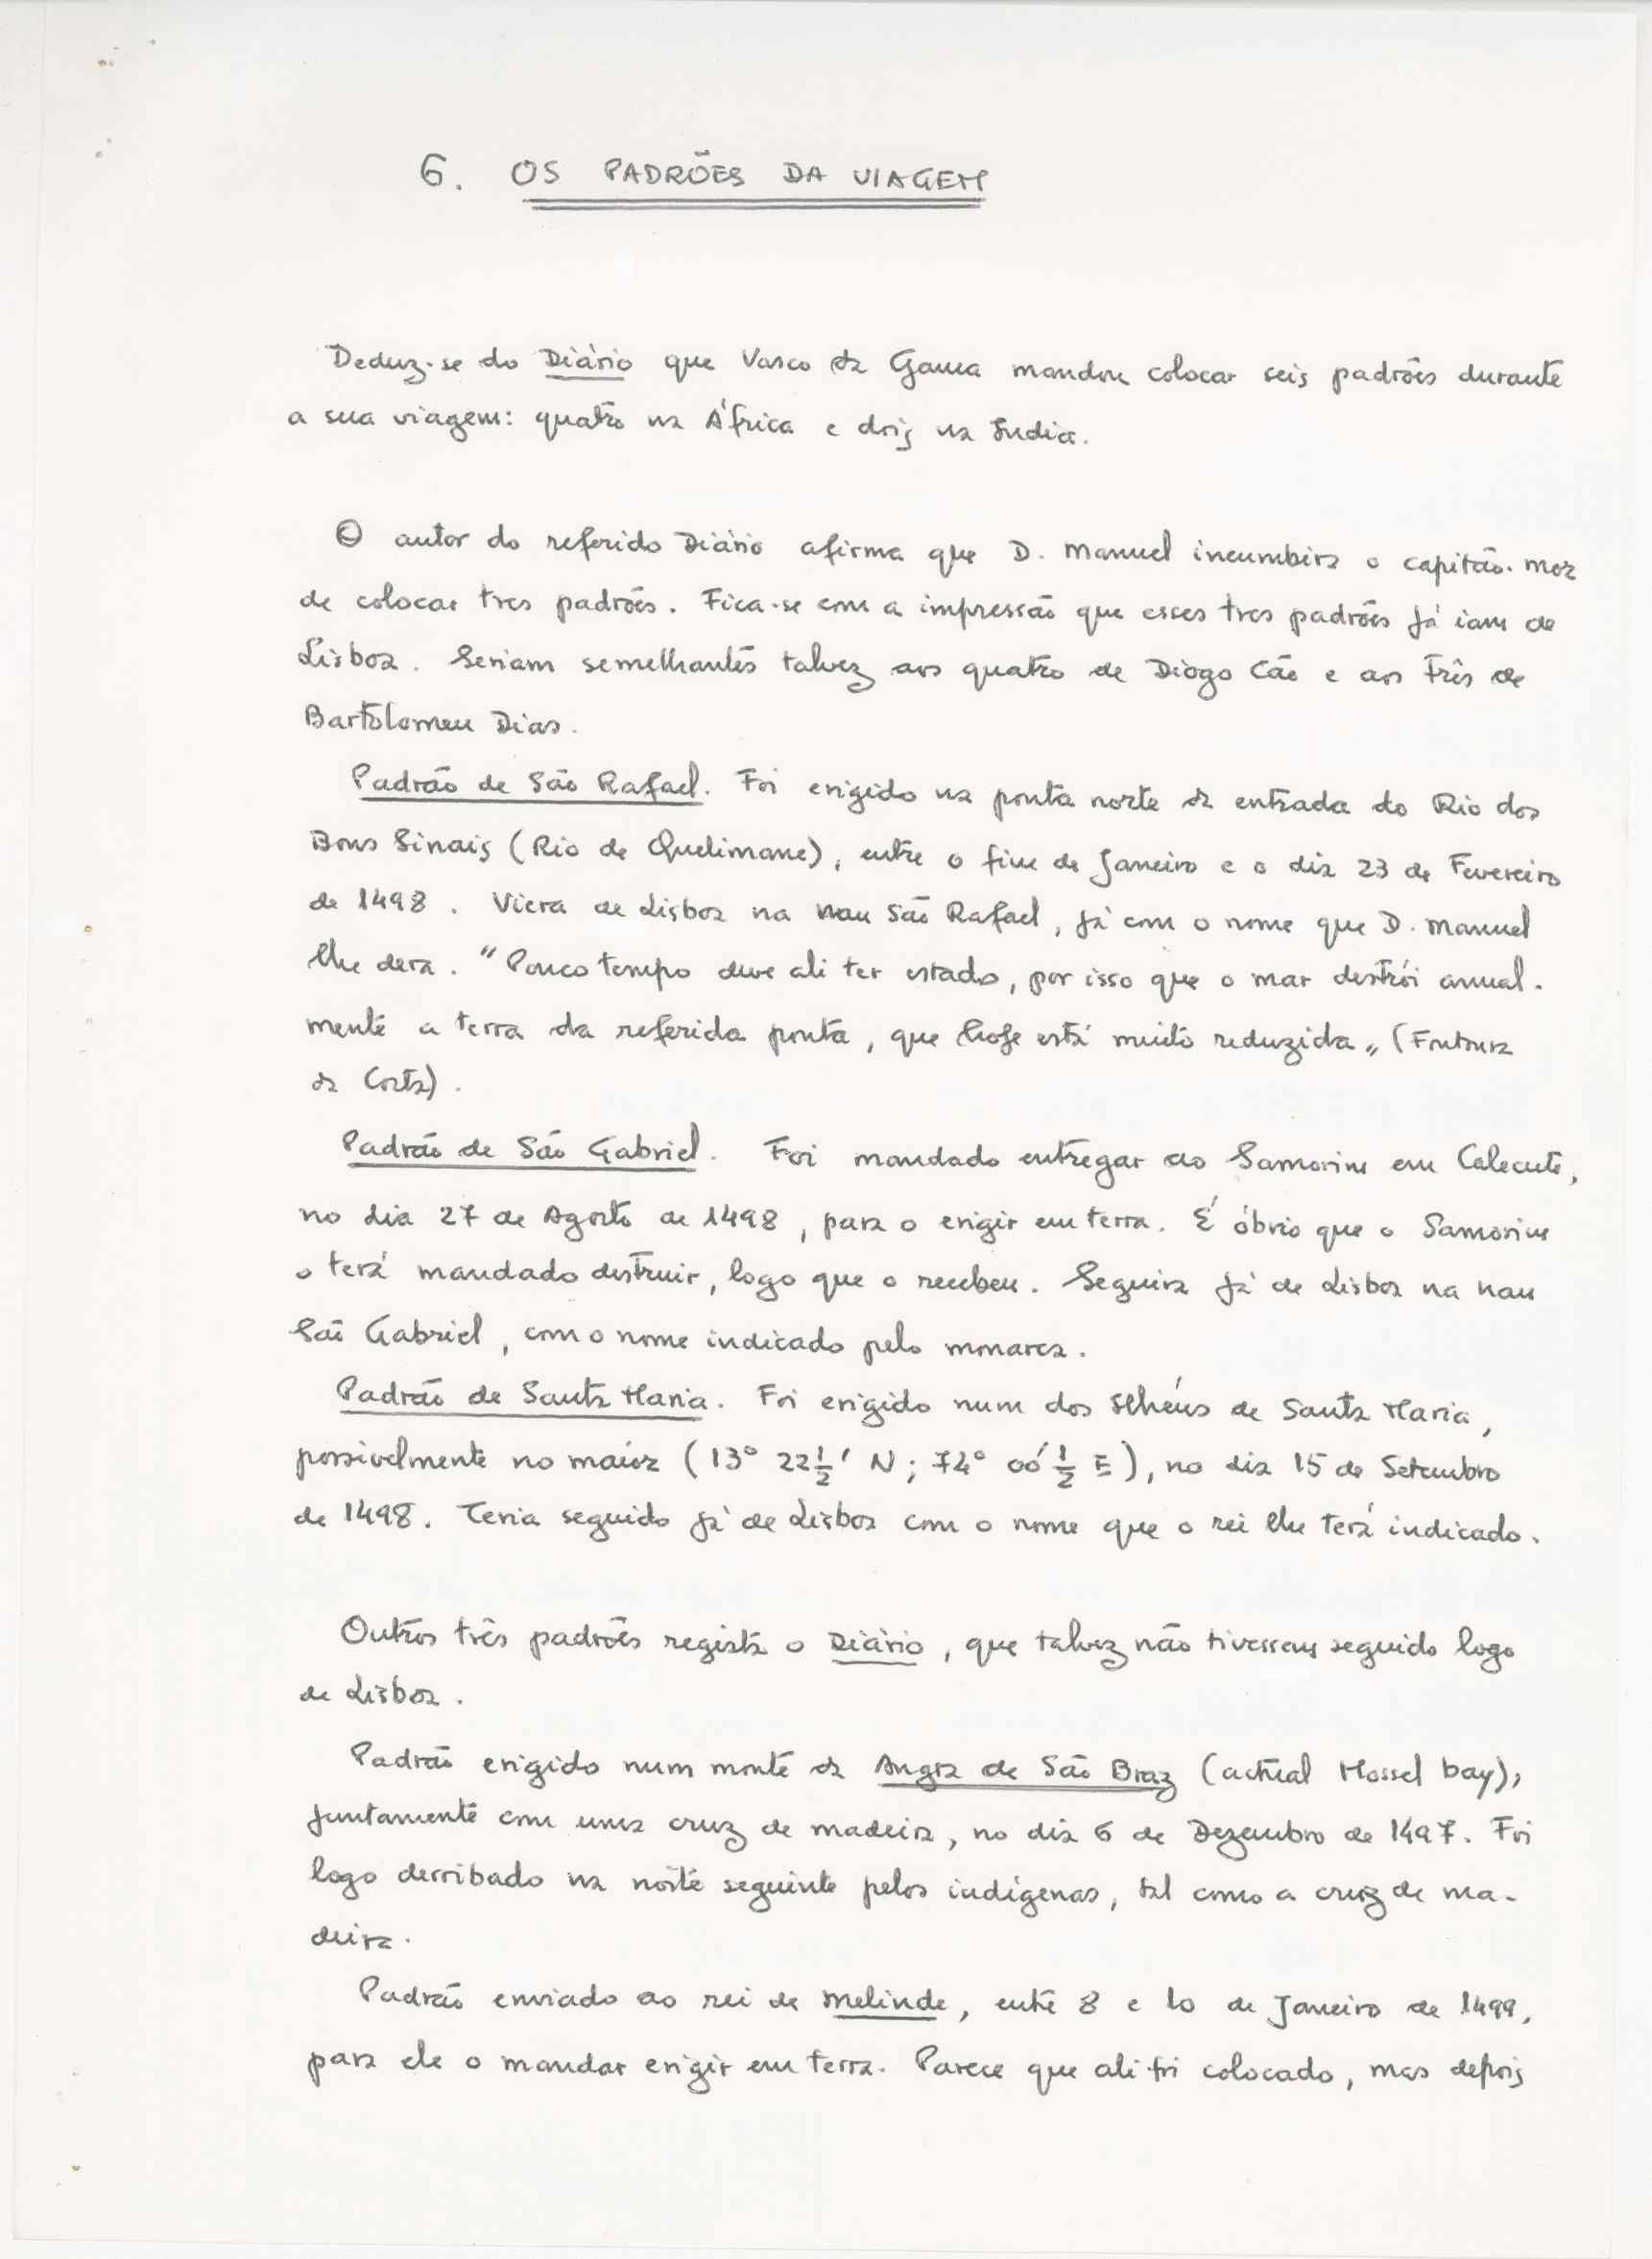 6. OS PADRÕES DA VIAGEM
Deduz-se do Diário que Vasco da Gama mandou colocar seis padrões durante
a sua viagem: quatro na África e dois na Índia.
O autor do referido Diário afirma que D. Manuel incumbira o capitão-mor
de colocar tres padrões. Fica-se com a impressão que esses tres padrões já iam de
Lisboa. Seriam semelhantes talvez aos quatro de Diogo Cão e aos três de
Bartolomeu Dias.
Padrão de São Rafael. Foi erigido na ponta norte da entrada do Rio dos
Bons Sinais (Rio de Quelimane), entre o fim de Janeiro e o dia 23 de Fevereiro
de 1498. Viera de Lisboa na nau São Rafael, já com o nome que D. Manuel
lhe dera. "Pouco tempo deve ali ter estado, por isso que o mar destrói anual-
mente a terra da referida ponta, que hoje está muito reduzida„ (Fontoura
da Costa).
Padrão de São Gabriel. Foi mandado entregar ao Samorim em Calecute,
no dia 27 de Agosto de 1498, para o erigir em terra. É óbvio que o Samorim
o terá mandado destruir, logo que o recebeu. Seguira já de Lisboa na nau
São Gabriel, com o nome indicado pelo monarca.
Padrão de Santa Maria. Foi erigido num dos Ilhéus de Santa Maria,
possivelmente no maior (13° 22½' N; 74° 00'½ E), no dia 15 de Setembro
de 1498. Teria seguido já de Lisboa com o nome que o rei lhe terá indicado.
Outros três padrões regista o Diário, que talvez não tivessem seguido logo
de Lisboa.
Padrão erigido num monte da Angra de São Braz (actual Mossel bay),
juntamente com uma cruz de madeira, no dia 6 de Dezembro de 1497. Foi
logo derribado na noite seguinte pelos indígenas, tal como a cruz de ma-
deira.
Padrão enviado ao rei de Melinde, entre 8 e 10 de Janeiro de 1499,
para ele o mandar erigir em terra. Parece que ali foi colocado, mas depois